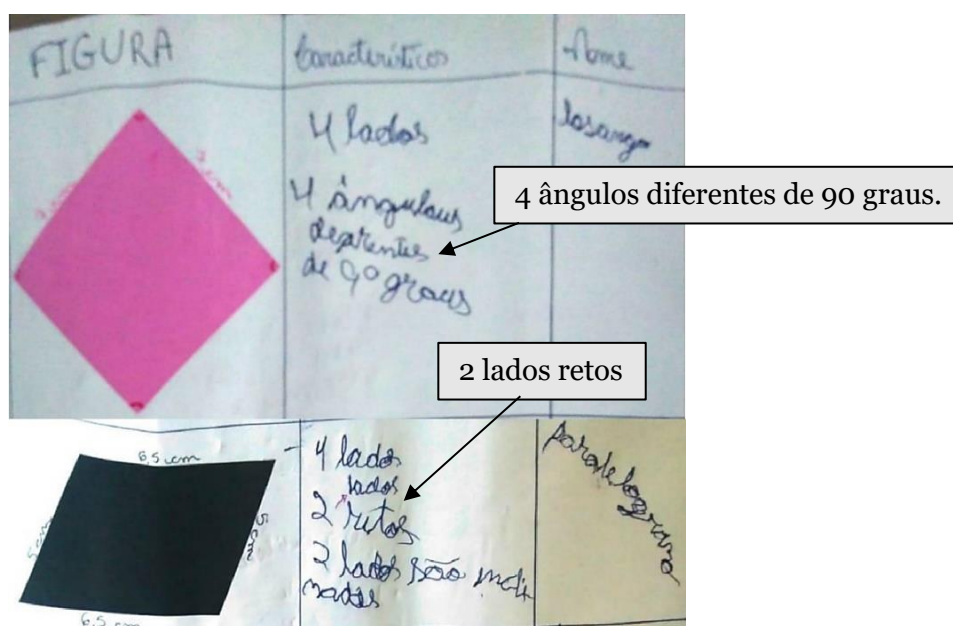 FIGURA
Características
Nome
7 cm
7 cm
4 lados
4 ângulaus
deferentes
de 90 graus
losango
4 ângulos diferentes de 90 graus.
2 lados retos
6,5 cm
5 cm
5 cm
6,5 cm
4 lados
lados
2 retos
2 lados são incli
nados
paralelogramo